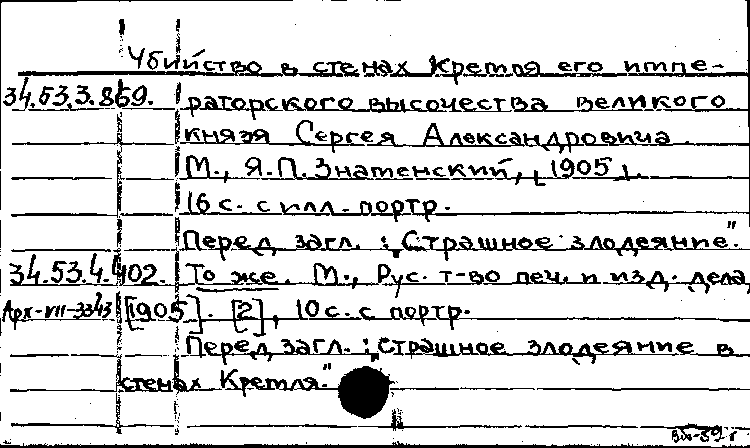 Убийство в стенах Кремля его импе-
34.53.3.869. раторского высочества великого
князя Сергея Александровича.
М., Я.П. Знаменский, [1905].
16 с. с илл. портр.
Перед загл.: „Страшное злодеяние".
34.53.4.402. То же. М., Рус. т-во печ. и изд. дела,
Арх-VII-3343 [1905]. [2], 10 с. с портр.
Перед загл.: „Страшное злодеяние в
стенах Кремля."